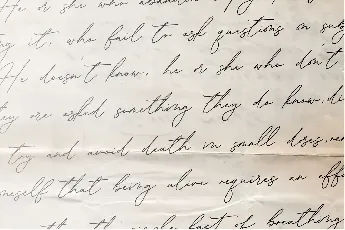 He or she who
it, who fail to ask questions on sub
He doesn't know, he or she who don't
ey are asked something they do know, di
try and avoid death in small doses, re
neself that being alive requires an effo
fact of breathing